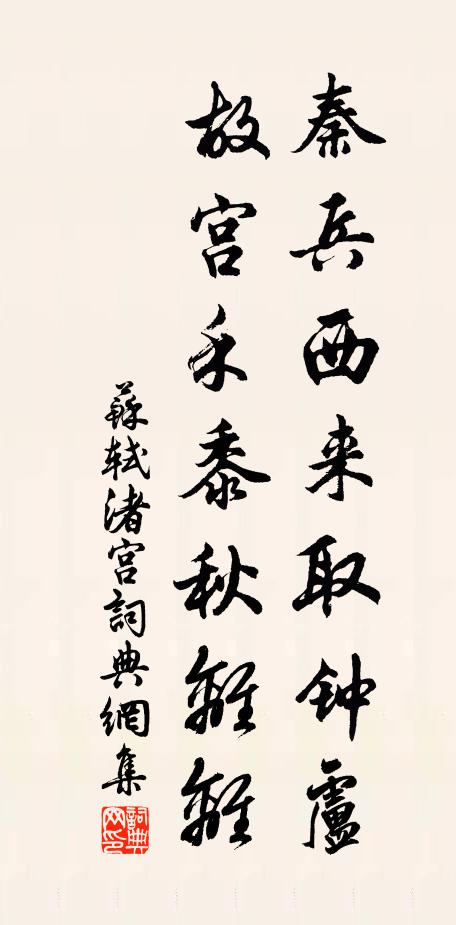 秦兵西来取钟廬
故宫禾黍秋離離
蘇軾渚宫詞典網集
詞典网印